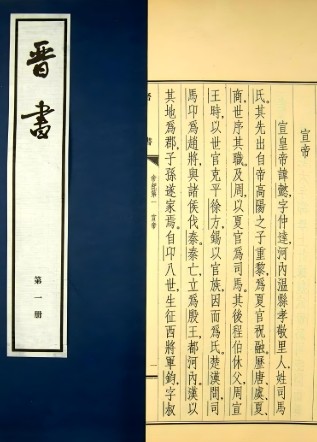 晋書
第一册
宣帝
宣皇帝諱懿，字仲達，河內溫縣孝敬里人，姓司馬
氏。其先出自帝高陽之子重黎，爲夏官祝融。歷唐虞夏
商，世序其職。及周，以夏官爲司馬。其後程伯休父，周宣
王時，以世官克平徐方，錫以官族，因而爲氏。楚漢間，司
馬卬爲趙將，與諸侯伐秦。秦亡，立爲殷王，都河內。漢以
其地爲郡，子孫遂家焉。自卬八世，生征西將軍鈞，字叔
帝紀第一 宣帝
一